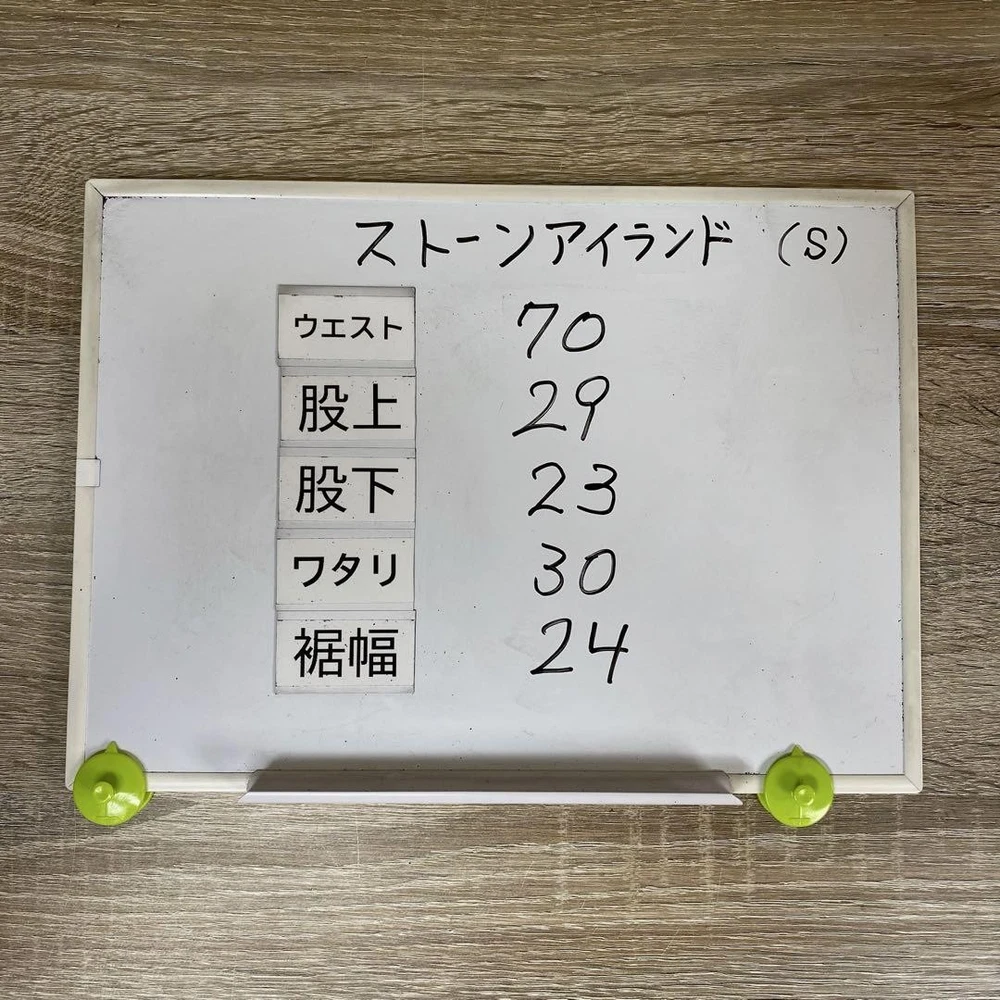 ストーンアイランド (S)
ウエスト 70
股上 29
股下 23
ワタリ 30
裾幅 24